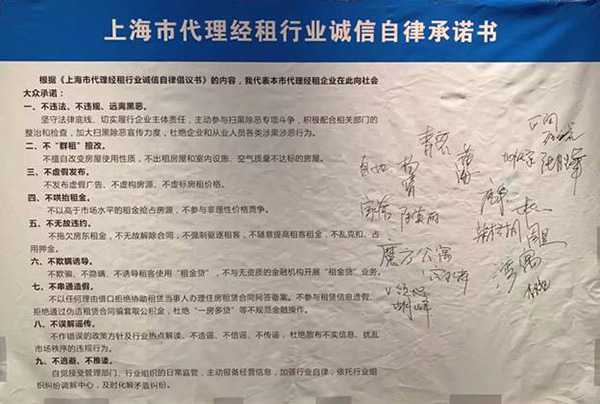 上海市代理经租行业诚信自律承诺书
根据《上海市代理经租行业诚信自律倡议书》的内容，我代表本市代理经租企业在此向社会
大众承诺：
一、不违法、不违规、远离黑恶。
坚守法律底线、切实履行企业主体责任，主动参与扫黑除恶专项斗争，积极配合相关部门的
整治和检查，加大扫黑除恶宣传力度，杜绝企业和从业人员各类涉黑涉恶行为。
二、不“群租”擅改。
不擅自改变房屋使用性质，不出租房屋和室内设施、空气质量不达标的房屋。
三、不虚假发布。
不发布虚假广告、不虚构房源、不虚标房租价格。
四、不哄抬租金。
不以高于市场水平的租金抢占房源，不参与非理性价格竞争。
五、不无故违约。
不拖欠房东租金，不无故解除合同，不强制驱逐租客，不随意提高租客租金，不乱克扣、占
用押金。
六、不欺瞒诱导。
不欺骗、不隐瞒、不诱导租客使用“租金贷”，不与无资质的金融机构开展“租金贷”业务。
七、不串通造假。
不以任何理由借口拒绝协助租赁当事人办理住房租赁合同网签备案。不参与租赁信息造假，
拒绝通过伪造租赁合同骗套取公积金，杜绝“一房多贷”等不规范金融操作。
八、不误解谣传。
不作错误的政策方针及行业热点解读、不造谣、不信谣、不传谣，杜绝散布不实信息、扰乱
市场秩序的违规行为。
九、不逃避、不推诿。
自觉接受管理部门、行业组织的日常监管，主动报备经营信息，加强行业自律，依托行业组
织纠纷调解中心，及时化解矛盾纠纷。
魔方公寓
湾寓